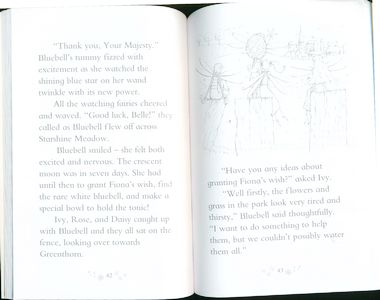 "Thank you, Your Majesty."
Bluebell's tummy fizzed with
excitement as she watched the
shining blue star on her wand
twinkle with its new power.
All the watching fairies cheered
and waved. "Good luck, Belle!" they
called as Bluebell flew off across
Starshine Meadow.
Bluebell smiled – she felt both
excited and nervous. The crescent
moon was in seven days. She had
until then to grant Fiona's wish, find
the rare white bluebell, and make a
special bowl to hold the tonic!
Ivy, Rose, and Daisy caught up
with Bluebell and they all sat on the
fence, looking over towards
Greenthorn.
42
"Have you any ideas about
granting Fiona's wish?" asked Ivy.
"Well firstly, the flowers and
grass in the park look very tired and
thirsty," Bluebell said thoughtfully.
"I want to do something to help
them, but we couldn't possibly water
them all."
43